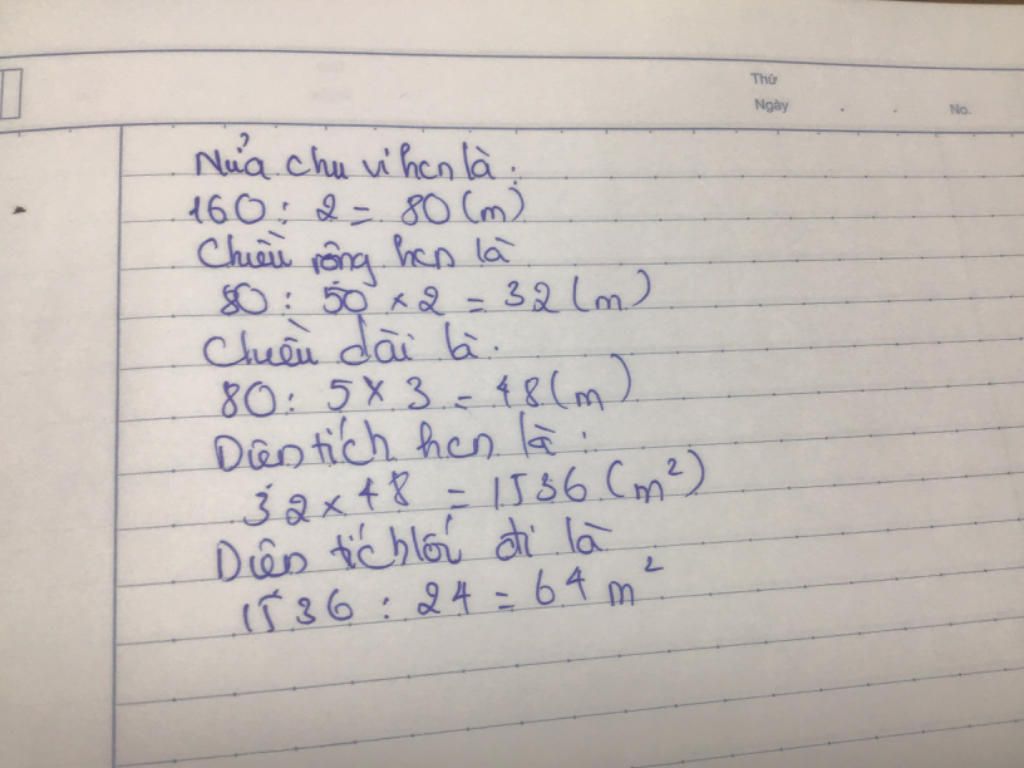 Thứ
Ngày . . No.
Nửa chu vi hcn là :
160 : 2 = 80 (m)
Chiều rộng hcn là
80 : 50 × 2 = 32 (m)
Chiều dài là .
80 : 5 × 3 = 48 (m)
Diện tích hcn là :
32 × 48 = 1536 (m²)
Diện tích lối đi là
1536 : 24 = 64 m²